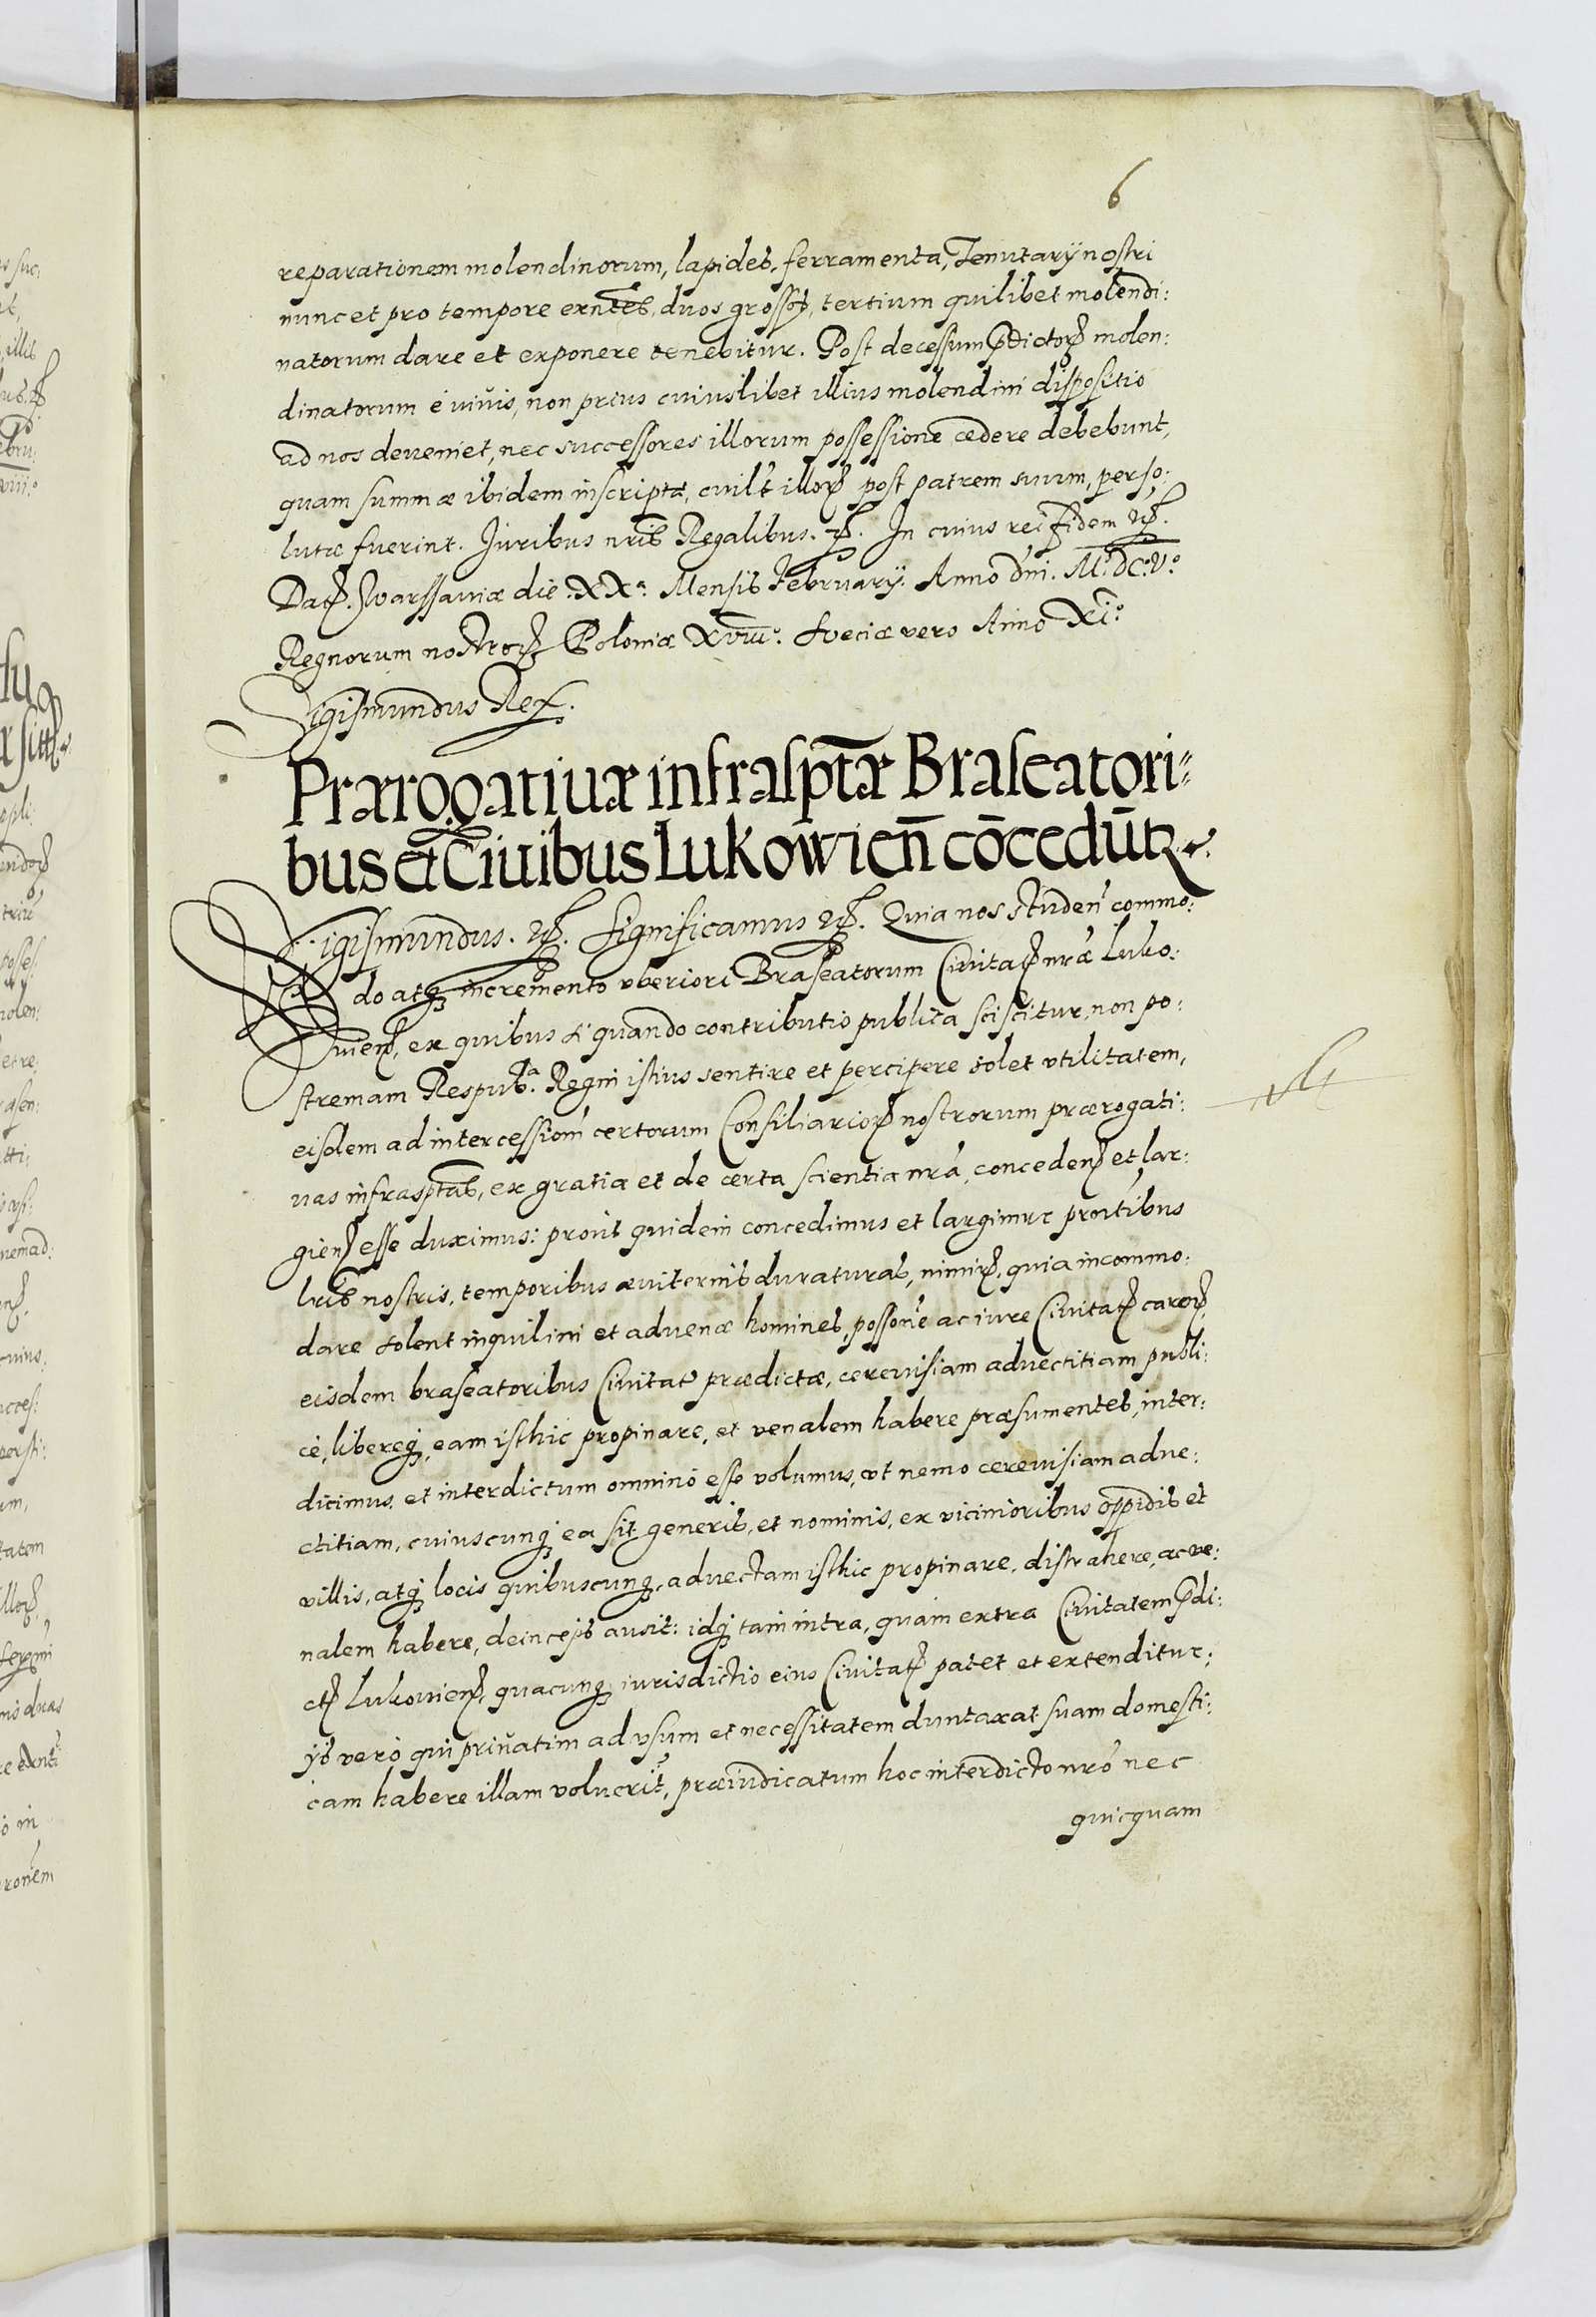 6
reparationem molendinorum, lapides, ferramenta, Tenutarÿ nostri
nunc et pro tempore exntes, duos grossos, tertium quilibet molendi:
natorum dare et exponere tenebitur. Post decessum p̃dictoꝝ molen:
dinatorum è viuis, non prius cuiuslibet illius molendini dispositio
ad nos deueniet, nec successores illorum possessione cedere debebunt,
quam summæ ibidem inscriptæ, cuilt illoꝝ post patrem suum, perso:
lutæ fuerint. Juribus nris Regalibus. &c. In cuius rei fidem &c.
Datꝭ. Warssauiæ die. XXa. Mensis Februarÿ. Anno dni. M.o DC.o V.o
Regnorum nostroꝝ Poloniæ XVIII.o Sueciæ vero Anno XI.o
Sigismundus Rex.
Prærogatiuæ infrasptæ Braseatori=
bus et Ciuibus Lukowien̄ cōcedūtꝛ.
Sigismundus. &c. Significamus &c. Quia nos studen commo:
do atqꝫ incremento vberiori Braseatorum Ciuitatꝭ nræ Luko:
uienꝭ, ex quibus si quando contributio publica sciscitur, non po:
stremam Respub.a Regni istius sentire et percipere solet vtilitatem,
eisdem ad intercessiom certorum Consiliarioꝝ nostrorum prærogati:
uas infrasptas, ex gratia et de certa scientia nra, concedenꝭ et lar:
gienꝭ esse duximus: prout quidem concedimus et largimur prntibus
lris nostris, temporibus æuiternis duraturas, nimirꝭ, quia incommo:
dare solent inquilini et aduenæ homines, possone ac iure Ciuitatꝭ carenꝭ,
eisdem braseatoribus Ciuitatꝭ prædictæ, cereuisiam aduectitiam publi:
cè, libereqꝫ, eam isthic propinare, et venalem habere præsumentes, inter:
dicimus, et interdictum omnino esse volumus, vt nemo cereuisiam adue:
ctitiam, cuiuscunqꝫ ea sit generis, et nominis, ex vicinioribus oppidis et
villis, atqꝫ locis quibuscunqꝫ, aduectam isthic propinare, distrahere, ac ve:
nalem habere, deinceps ausit: idqꝫ tam intra, quam extra Ciuitatem p̃di:
ctꝭ Lukouienꝭ, quacunqꝫ iurisdictio eius Ciuitatꝭ patet et extenditur;
ijs vero qui priuatim ad vsum et necessitatem duntaxat suam domesti:
cam habere illam voluerit, præiudicatum hoc interdicto nro nec
quicquam